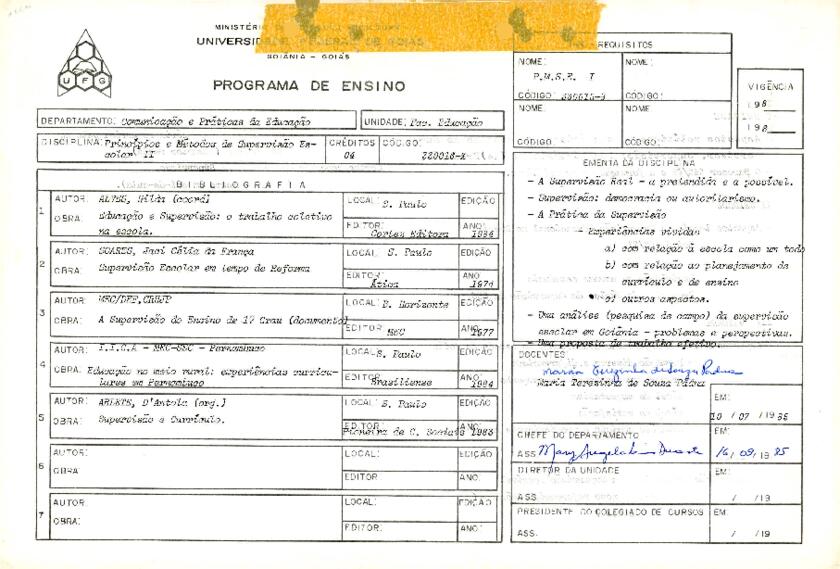 UFG
UNIVERSIDADE FEDERAL DE GOIÁS
GOIÂNIA - GOIÁS
PROGRAMA DE ENSINO
DEPARTAMENTO: Comunicação e Práticas da Educação
UNIDADE: Fac. Educação
DISCIPLINA: Princípios e Métodos de Supervisão Es-
colar II
CRÉDITOS
04
CÓDIGO:
BIBLIOGRAFIA
1
AUTOR: ALVES, Nilda (coord)
OBRA: Educação e Supervisão: o trabalho coletivo
na escola.
LOCAL: S. Paulo
EDIÇÃO
EDITOR: Cortez Editora
ANO: 1984
2
AUTOR: SOARES, Jaci Célia da França
OBRA: Supervisão Escolar em tempo de Reforma
LOCAL: S. Paulo
EDIÇÃO
EDITOR: Ática
ANO
3
AUTOR: MEC/DEF, CRHJP
OBRA: A Supervisão do Ensino de 1º Grau (documento)
LOCAL: B. Horizonte
EDIÇÃO
EDITOR: MEC
ANO: 1977
4
AUTOR: I.I.C.A - MEC-SEC - Pernambuco
OBRA: Educação no meio rural: experiências curricu-
lares em Pernambuco
LOCAL: S. Paulo
EDIÇÃO
EDITOR: Brasiliense
ANO: 1984
5
AUTOR: ARLETE, D'Antola (org.)
OBRA: Supervisão e Currículo.
LOCAL: S. Paulo
EDIÇÃO
EDITOR: Pioneira de C. Sociais
ANO: 1983
6
AUTOR:
OBRA:
LOCAL:
EDIÇÃO
EDITOR
ANO:
7
AUTOR:
OBRA:
LOCAL:
EDIÇÃO
EDITOR:
ANO:
REQUISITOS
NOME:
P.M.S.E. I
CÓDIGO:
NOME:
CÓDIGO:
NOME:
CÓDIGO:
NOME:
CÓDIGO:
VIGÊNCIA
198
198
EMENTA DA DISCIPLINA
- A Supervisão Real - a pretendida e a possível.
- Supervisão: democracia ou autoritarismo.
- A Prática da Supervisão
- Experiências vividas
a) com relação à escola como um todo
b) com relação ao planejamento de
currículo e de ensino
c) outros aspectos.
- Uma análise (pesquisa de campo) da supervisão
escolar em Goiânia - problemas e perspectivas.
- Uma proposta de trabalho efetivo.
DOCENTES:
Maria Terezinha de Souza Pádua
Maria Terezinha de Souza Pádua
EM:
10 / 07 / 1985
CHEFE DO DEPARTAMENTO
ASS.
EM:
16 / 09 / 1985
DIRETOR DA UNIDADE
ASS.
EM:
/ / 19
PRESIDENTE DO COLEGIADO DE CURSOS
ASS.
EM:
/ / 19